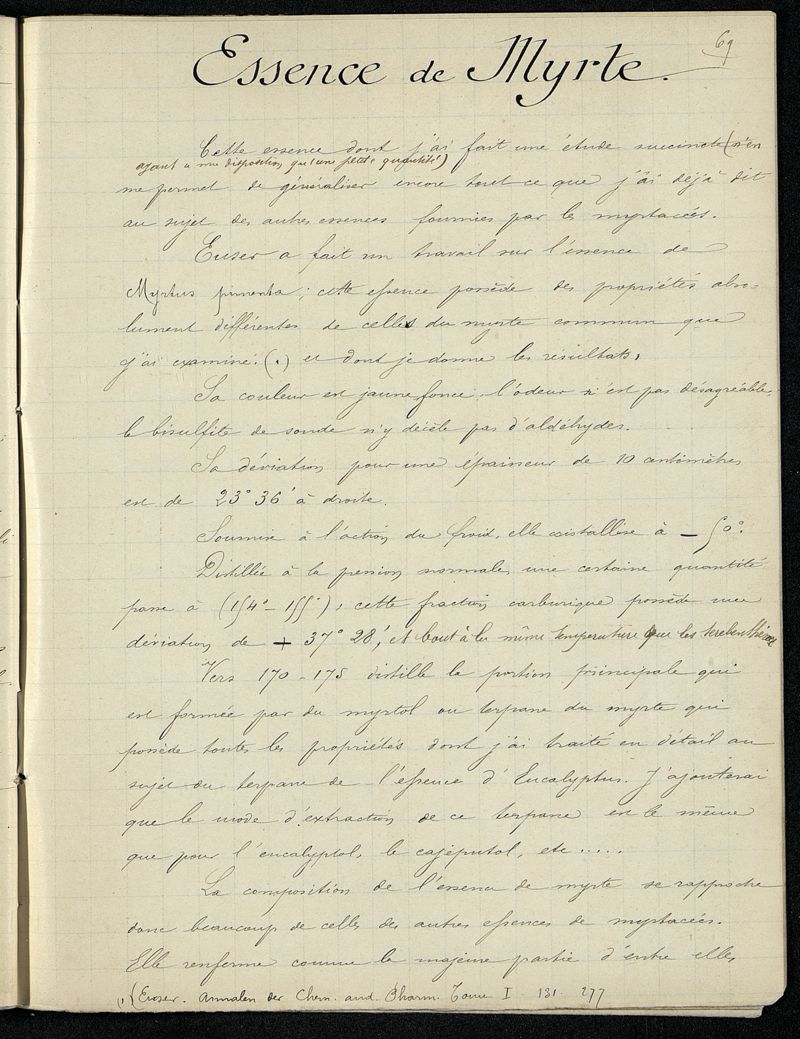 69
Essence de Myrte.
Cette essence dont j'ai fait une étude succincte (n'en
ayant à ma disposition qu'une petite quantité)
me permet de généraliser encore tout ce que j'ai déjà dit
au sujet des autres essences fournies par les myrtacées.
Euser a fait un travail sur l'essence de
Myrtus pimenta ; cette essence possède des propriétés abso-
lument différentes de celles du myrte commun que
j'ai examiné. (1) et dont je donne les résultats.
Sa couleur est jaune foncé, l'odeur n'est pas désagréable,
le bisulfite de soude n'y décèle pas d'aldéhydes.
Sa déviation pour une épaisseur de 10 centimètres
est de 23° 36' à droite.
Soumise à l'action du froid, elle cristallise à - 50°.
Distillée à la pression normale, une certaine quantité
passe à (154° - 155°), cette fraction carburique possède une
déviation de + 37° 28', et bout à la même température que les terebenthènes
Vers 170 - 175 distille la portion principale qui
est formée par du myrtol ou terpane du myrte qui
possède toutes les propriétés dont j'ai traité en détail au
sujet du terpane de l'essence d'Eucalyptus. J'ajouterai
que le mode d'extraction de ce terpane est le même
que pour l'eucalyptol, le cajeputol, etc .....
La composition de l'essence de myrte se rapproche
donc beaucoup de celles des autres essences de myrtacées.
Elle renferme comme la majeure partie d'entre elles
(1) (Euser. Annalen der Chem. and. Pharm. Tome I - 131 - 277